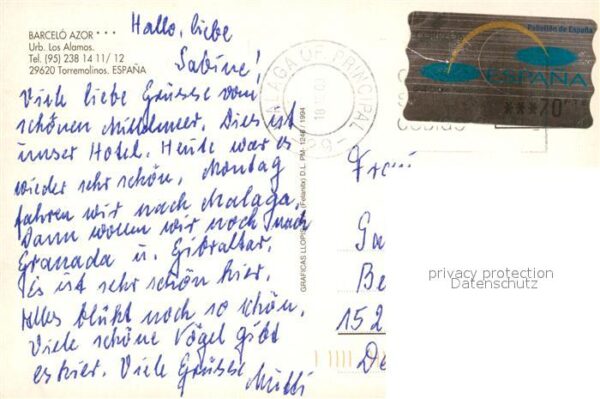 BARCELÓ AZOR ***
Urb. Los Alamos.
Tel. (95) 238 14 11 / 12
29620 Torremolinos. ESPAÑA
Hallo, liebe
Sabine!
Viele liebe Grüsse vom
schönen Mittelmeer. Dies ist
unser Hotel. Heute war es
wieder sehr schön, Montag
fahren wir nach Malaga.
Dann wollen wir noch nach
Granada u. Gibraltar.
Es ist sehr schön hier.
Alles blüht noch so schön.
Viele schöne Vögel gibt
es hier. Viele Grüsse
Mutti
GRAFICAS LLOPIS (Felanitx) D.L. PM- 1994
MALAGA OF PRINCIPAL
ESPAÑA
***70
Frau
Sa
Be
152
De
privacy protection
Datenschutz